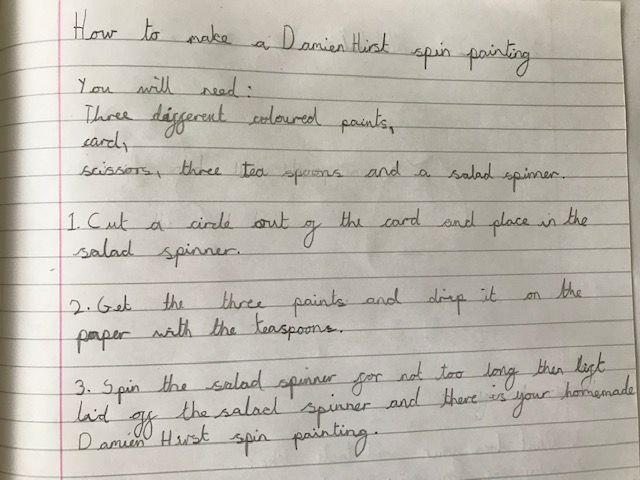 How to make a Damien Hirst spin painting
You will need:
Three different coloured paints,
card,
scissors, three tea spoons and a salad spinner.
1. Cut a circle out of the card and place in the
salad spinner.
2. Get the three paints and drip it on the
paper with the teaspoons.
3. Spin the salad spinner for not too long then lift
laid off the salad spinner and there is your homemade
Damien Hurst spin painting.